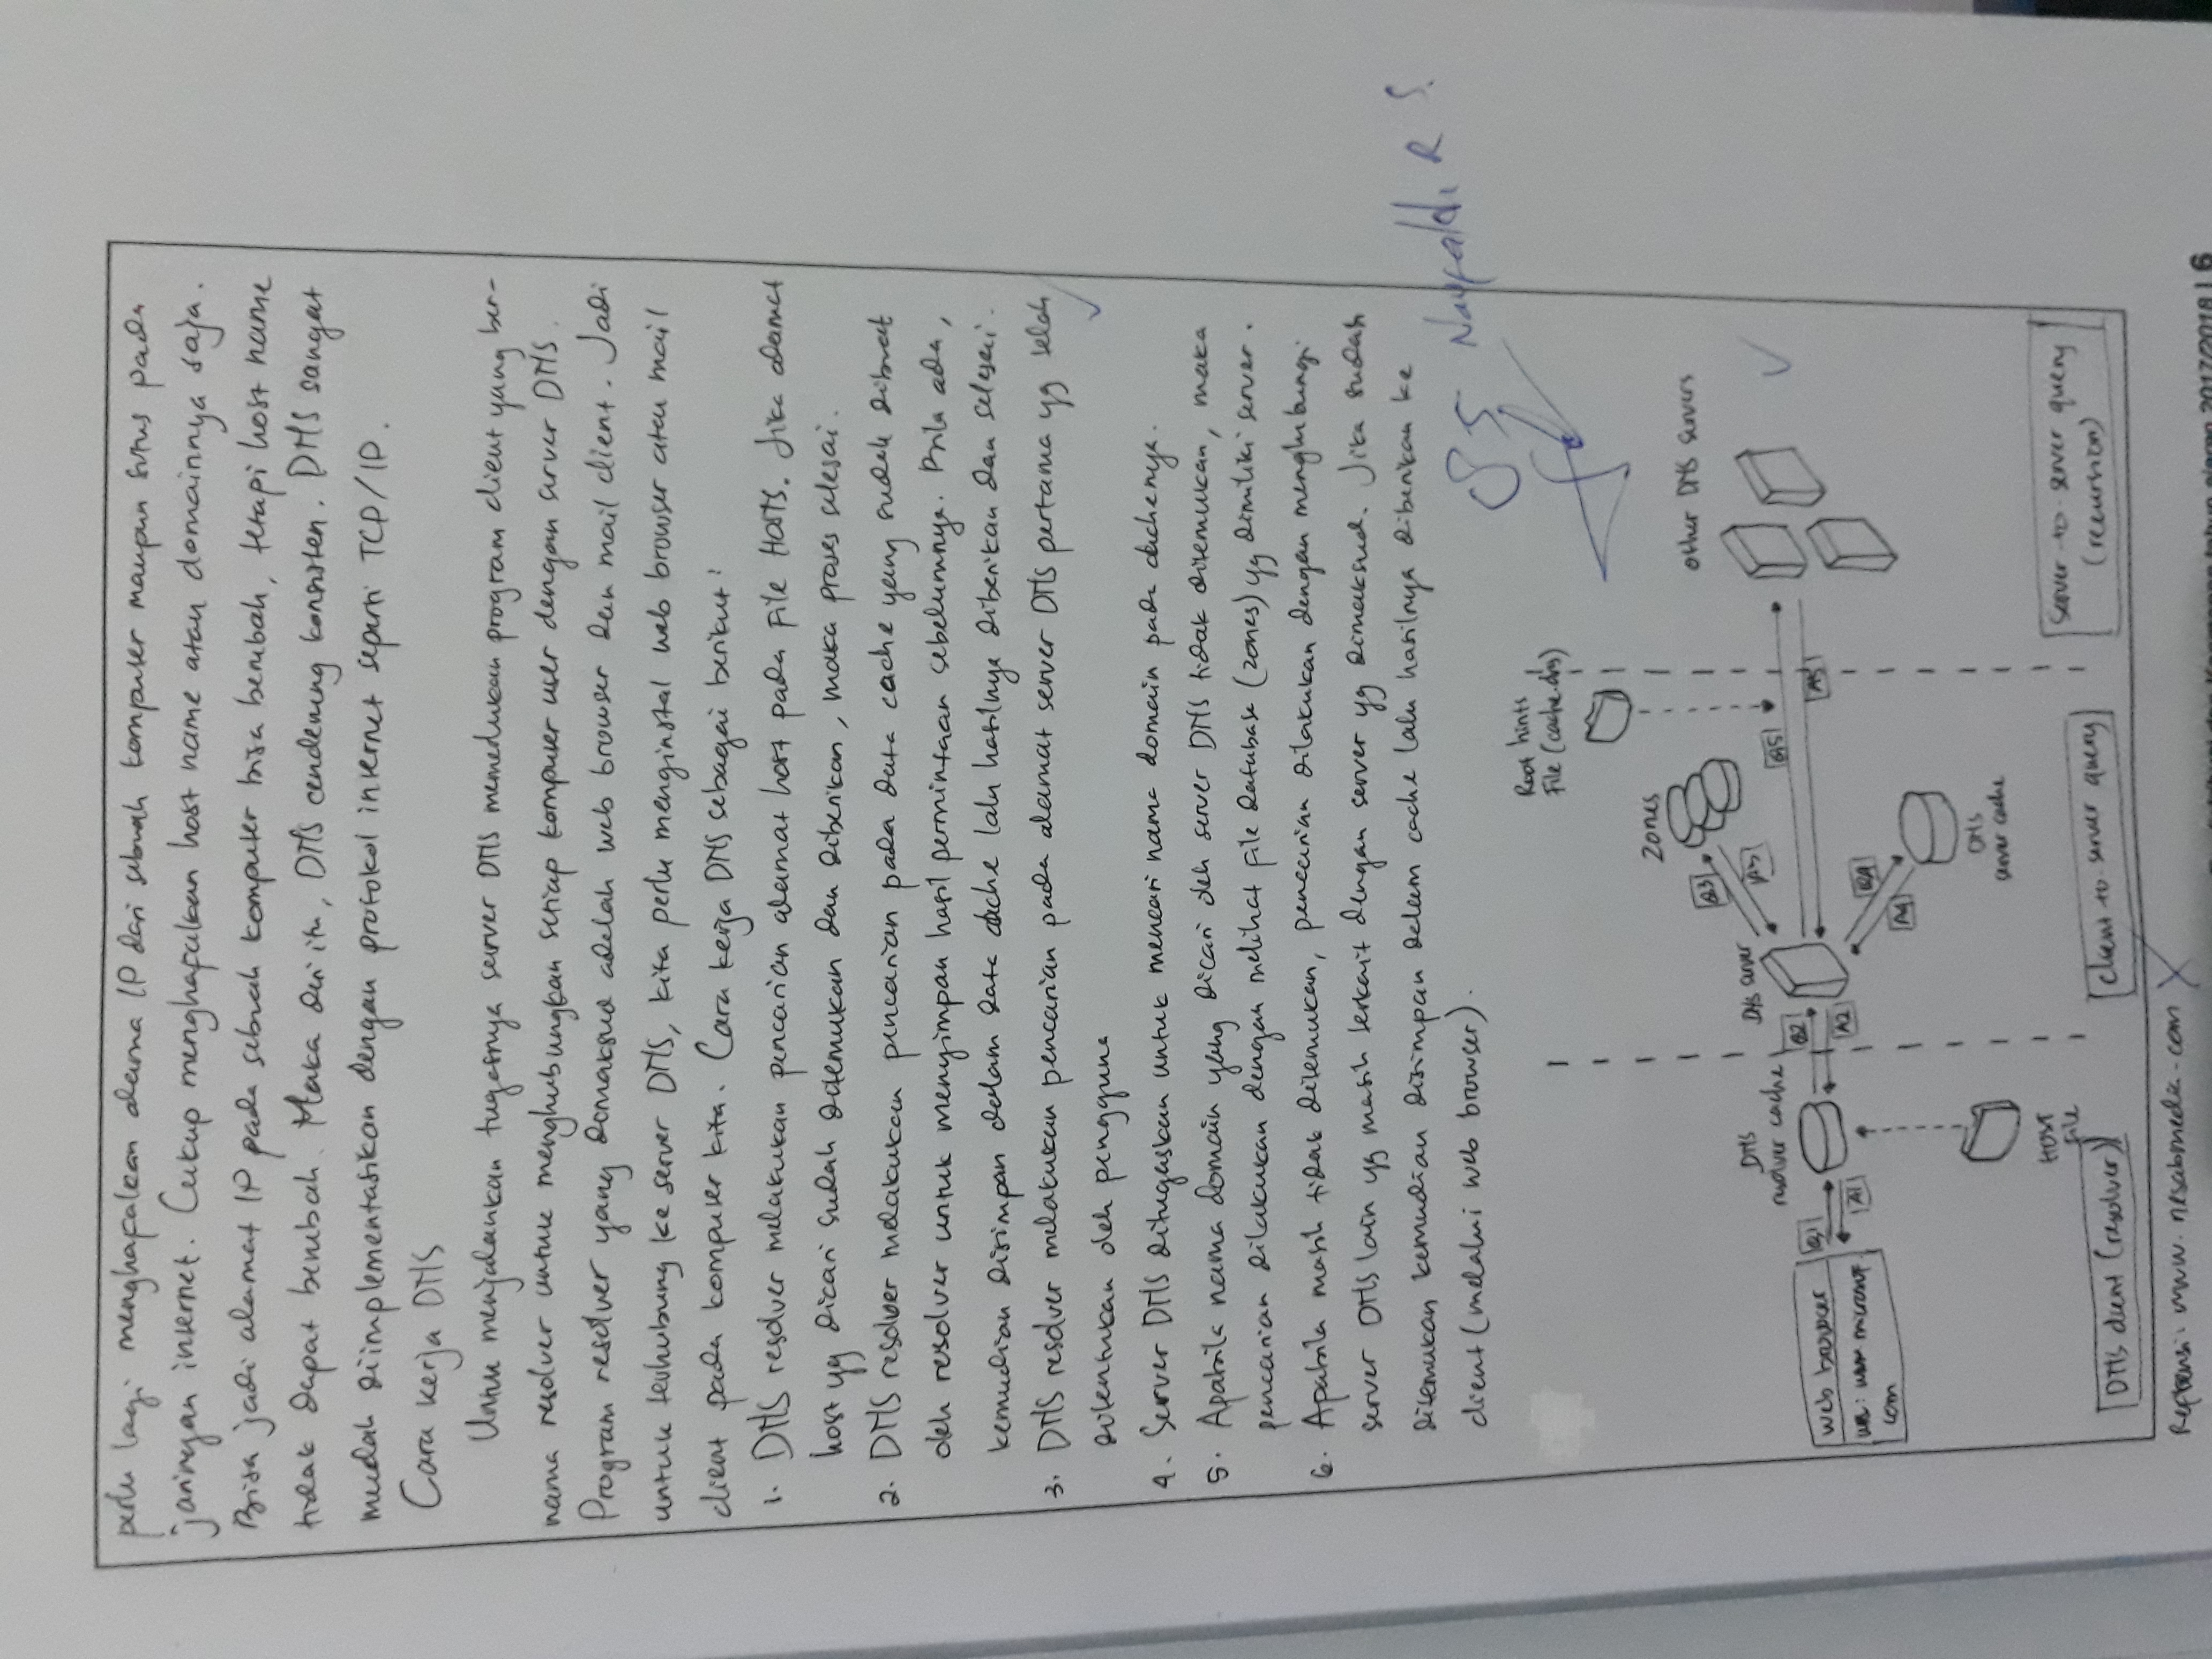 perlu lagi menghafalkan alama IP dari sebuah komputer maupun situs pada
jaringan internet. Cukup menghafalkan host name atau domainnya saja.
Bisa jadi alamat IP pada sebuah komputer bisa berubah, tetapi host name
tidak dapat berubah. Maka dari itu, DNS cenderung konsisten. DNS sangat
mudah diimplementasikan dengan protokol internet seperti TCP/IP.
Cara kerja DNS
Untuk menjalankan tugasnya server DNS memerlukan program client yang ber-
nama resolver untuk menghubungkan setiap komputer user dengan server DNS.
Program resolver yang domaksud adalah web browser dan mail client. Jadi
untuk terhubung ke server DNS, kita perlu menginstal web browser atau mail
client pada komputer kita. Cara kerja DNS sebagai berikut:
1. DNS resolver melakukan pencarian alamat host pada file HOSTS. Jika alamat
host yg dicari sudah ditemukan dan diberikan, maka proses selesai.
2. DNS resolver melakukan pencarian pada data cache yang sudah dibuat
oleh resolver untuk menyimpan hasil permintaan sebelumnya. Bila ada,
kemudian disimpan dalam data cache lalu hasilnya diberikan dan selesai.
3. DNS resolver melakukan pencarian pada alamat server DNS pertama yg telah
ditentukan oleh pengguna
4. Server DNS ditugaskan untuk mencari nama domain pada cachenya.
5. Apabila nama domain yang dicari oleh server DNS tidak ditemukan, maka
pencarian dilakukan dengan melihat file database (zones) yg dimiliki server.
6. Apabila masih tidak ditemukan, pencarian dilakukan dengan menghubungi
server DNS lain yg masih terkait dengan server yg dimaksud. Jika sudah
ditemukan kemudian disimpan dalam cache lalu hasilnya diberikan ke
client (melalui web browser).
85 R S
Root hints
File (cache.dns)
Zones
other DNS servers
Q3
A3
DNS
resolver cache
DNS server
Q5
A5
web browser
Q1
A1
Q2
A2
com
Q4
A4
DNS
server cache
HOST
file
DNS client (resolver)
client-to-server query
Server-to-server query
(recursion)
Referensi: www.nesabamedia.com
tahun ajaran 2017/2018 | 6